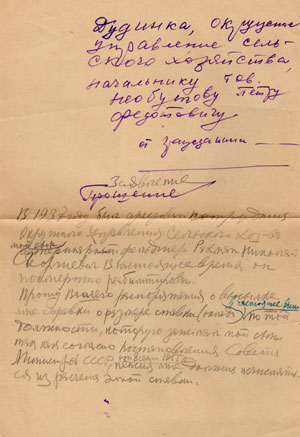 Дудинка, окружное
управление сель-
ского хозяйства,
начальнику тов.
Петру
Федотовичу
от
Заявление
Прошение
В 1937 году был арестован
Окружного Управления Сельского хоз-ва
Николай
В настоящее время он
посмертно реабилитирован.
Прошу Вашего распоряжения о высылке
мне справки о размере ставки (оклад) в настоящее время по той
должности, которую занимал мой
так как согласно постановления Совета
Министров СССР пенсия мне должна
ся из расчета этой ставки.